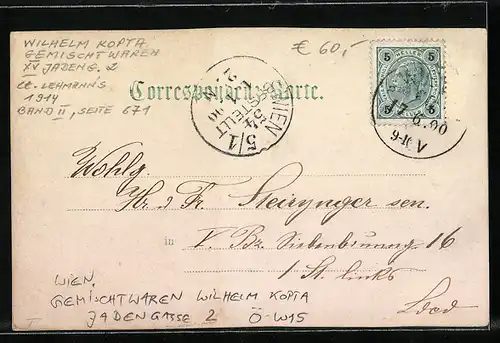 WILHELM KOPTA
GEMISCHTWAREN
XV JADENG. 2
LT. LEHMANN'S
1914
BAND II, SEITE 671
€ 60,-
Correspondenz-Karte.
WIEN
5/1
BESTELLT
5
5
5
5
17.6.00
Wohlg.
Hr. d Fr. Steirynger sen.
in V. Bz. Siebenbrunng. 16
1 St. links
WIEN,
GEMISCHTWAREN WILHELM KOPTA
JADENGASSE 2 Ö-W15